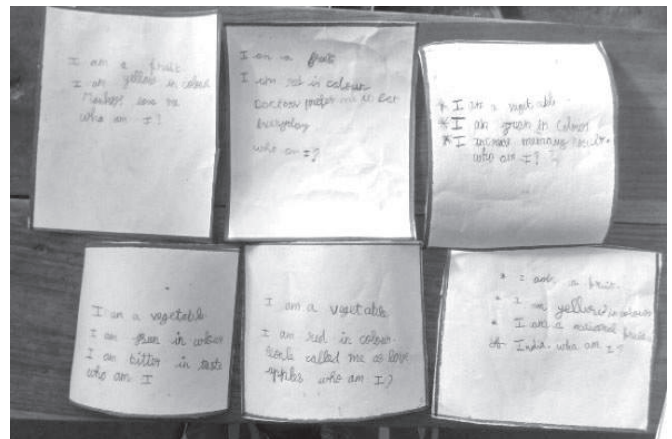 I am a fruit
I am yellow in colour
Monkeys love me
who am I?
I am a fruit
I am red in colour
Doctors prefer me to eat
Everyday
who am I?
* I am a vegetable
* I am green in colour
* I increase memory
who am I?
I am a vegetable
I am green in colour
I am bitter in taste
who am I
I am a vegetable
I am red in colour
called me as love
apples who am I?
* I am a fruit.
* I am yellow in colour
* I am a national fruit
of India. who am I?